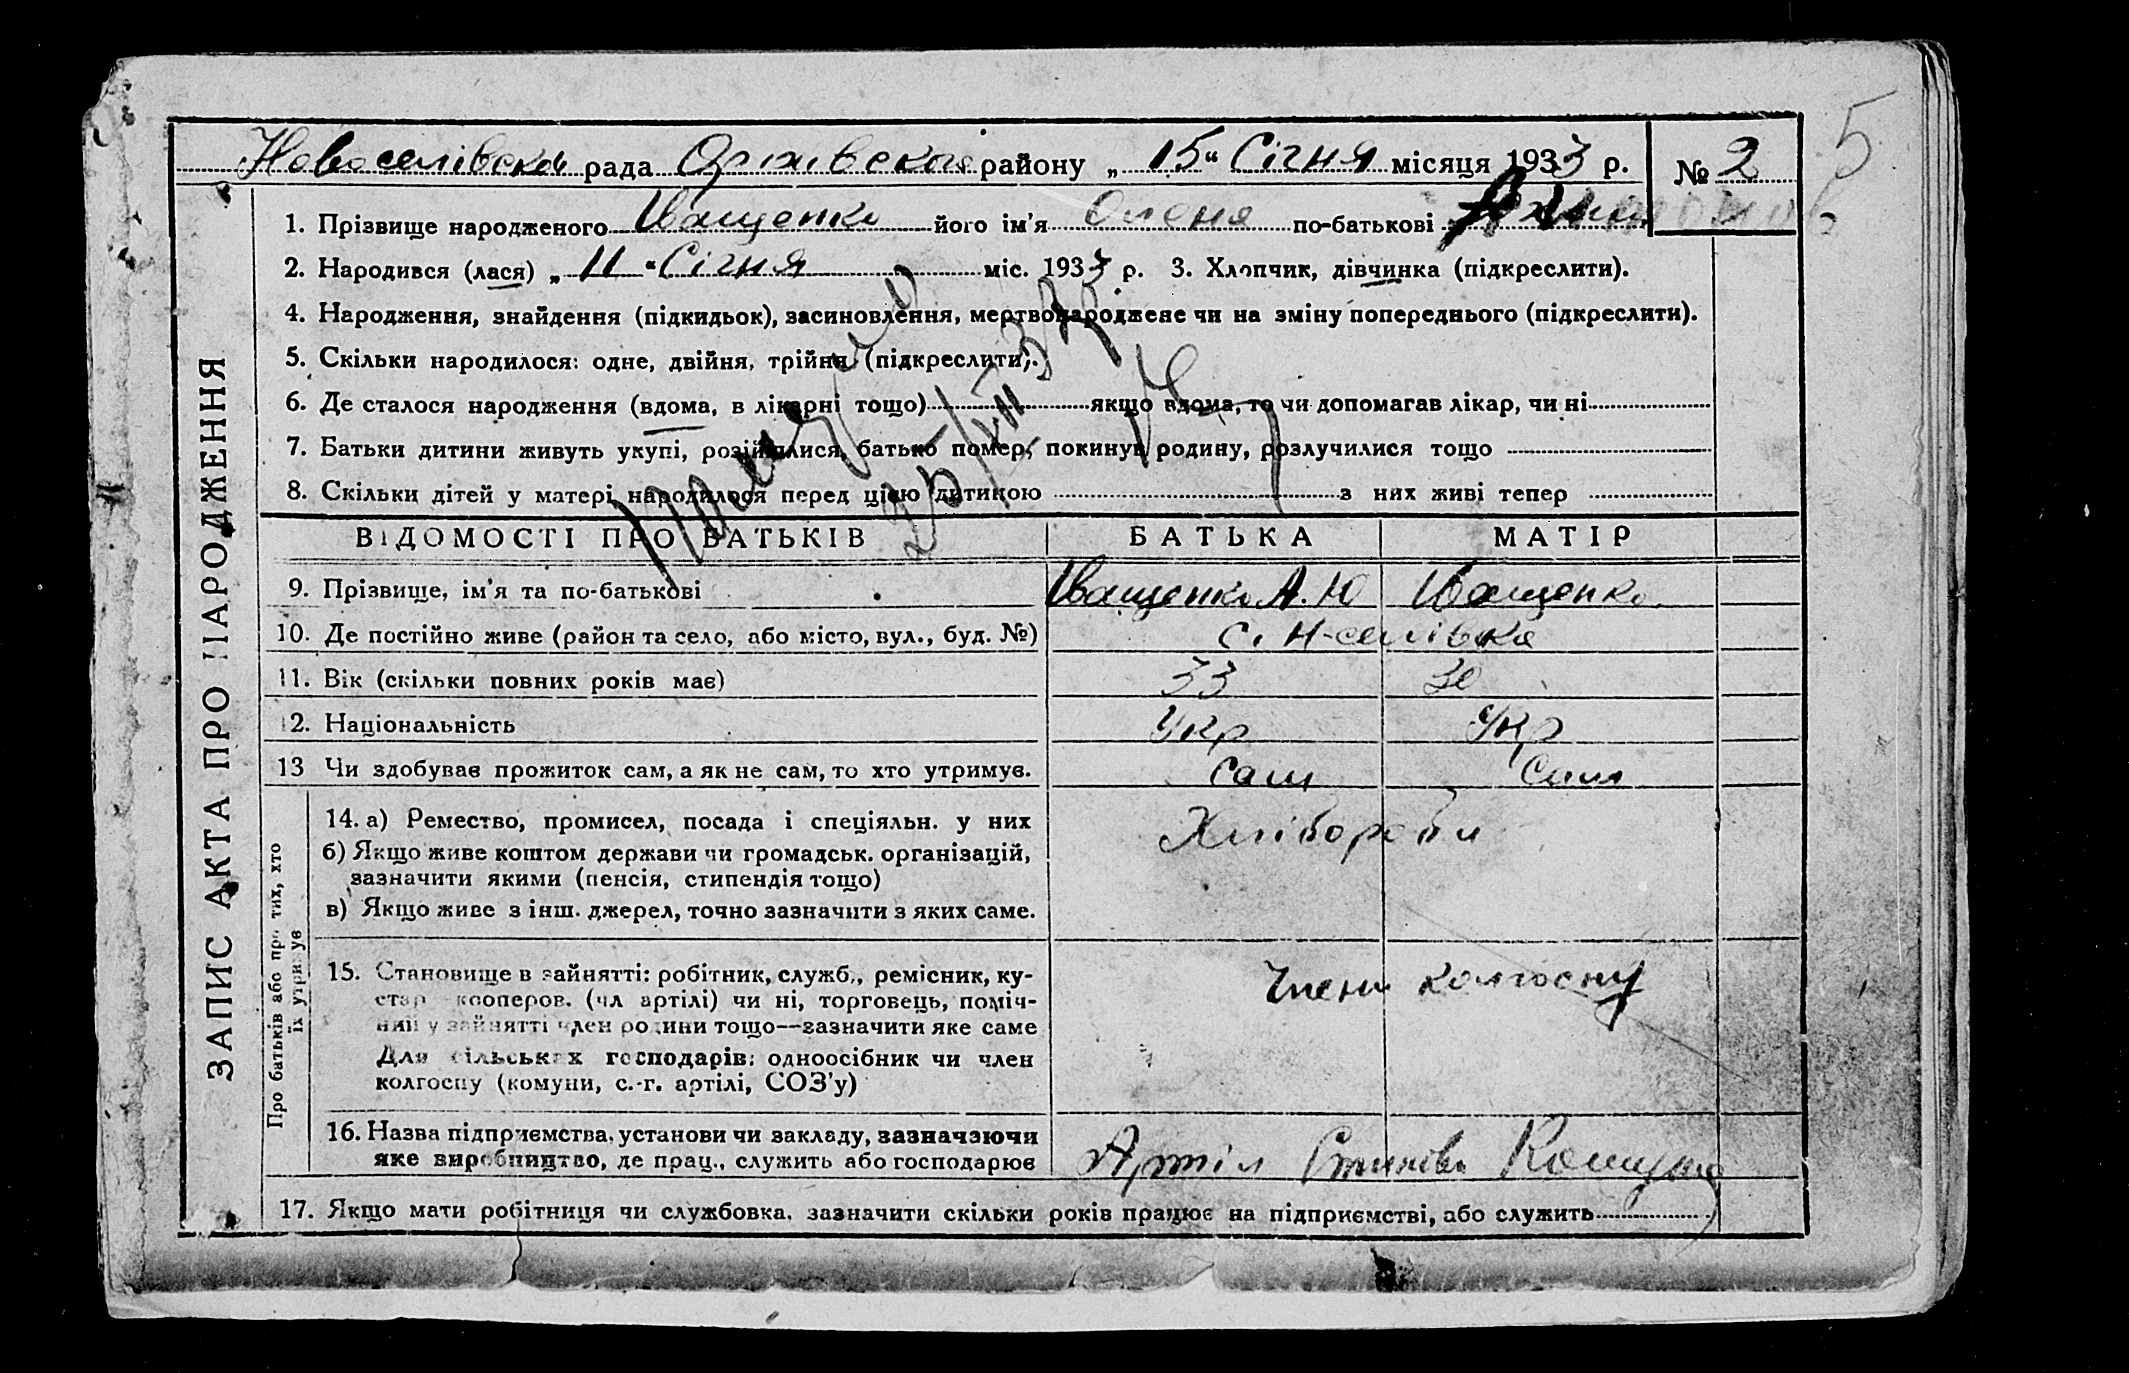 5
Новоселівска рада Оріхівського району „ 15 “ Січня місяця 1933 р. № 2
1. Прізвище народженого Иващенко його ім'я Олена по-батькові
2. Народився (лася) „ 11 “ Січня міс. 1933 р. 3. Хлопчик, дівчинка (підкреслити).
4. Народження, знайдення (підкидьок), засиновлення, мертвонароджене чи на зміну попереднього (підкреслити).
5. Скільки народилося: одне, двійня, трійня (підкреслити).
6. Де сталося народження (вдома, в лікарні тощо) якщо вдома, то чи допомагав лікар, чи ні
7. Батьки дитини живуть укупі, розійшлися, батько помер, покинув родину, розлучилися тощо
8. Скільки дітей у матері народилося перед цією дитиною з них живі тепер
ЗАПИС АКТА ПРО НАРОДЖЕННЯ
ВІДОМОСТІ ПРО БАТЬКІВ БАТЬКА МАТІР
9. Прізвище, ім'я та по-батькові Иващенко А. Ю Иващенко
10. Де постійно живе (район та село, або місто, вул., буд. №) с. Н-селівка
11. Вік (скільки повних років має) 33 30
12. Національність Укр Укр
13 Чи здобував прожиток сам, а як не сам, то хто утримує. Сам Сама
Про батьків або про тих, хто
їх утримує
14. а) Ремество, промисел, посада і спеціяльн. у них
б) Якщо живе коштом держави чи громадськ. організацій,
зазначити якими (пенсія, стипендія тощо)
в) Якщо живе з інш. джерел, точно зазначити з яких саме.
Хлібороби
15. Становище в зайнятті: робітник, служб., ремісник, ку-
стар кооперов. (чл артілі) чи ні, торговець, поміч-
ний у зайнятті член родини тощо—зазначити яке саме
Для сільських господарів: одноосібник чи член
колгоспу (комуни, с.-г. артілі, СОЗ'у)
Члени колгоспу
16. Назва підприємства, установи чи закладу, зазначаючи
яке виробництво, де прац., служить або господарює
Артіл
17. Якщо мати робітниця чи службовка, зазначити скільки років працює на підприємстві, або служить